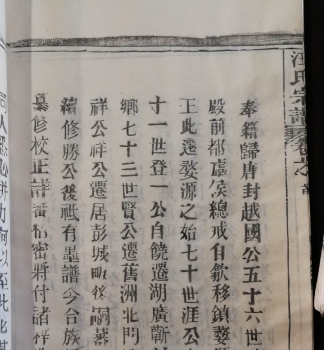 汪氏宗譜
奉籍歸唐封越國公五十六世
殿前都虞侯總戎自歙移鎮婺
王此遷婺源之始七十世涯公
十一世登一公自饒遷湖廣蘄
鄉七十三世賢公遷舊洲北門
祥公祥公遷居彭城畈後嗣蕃
續修勝公後祇有墨譜今合族
纂修校正詳番精密將付諸梓